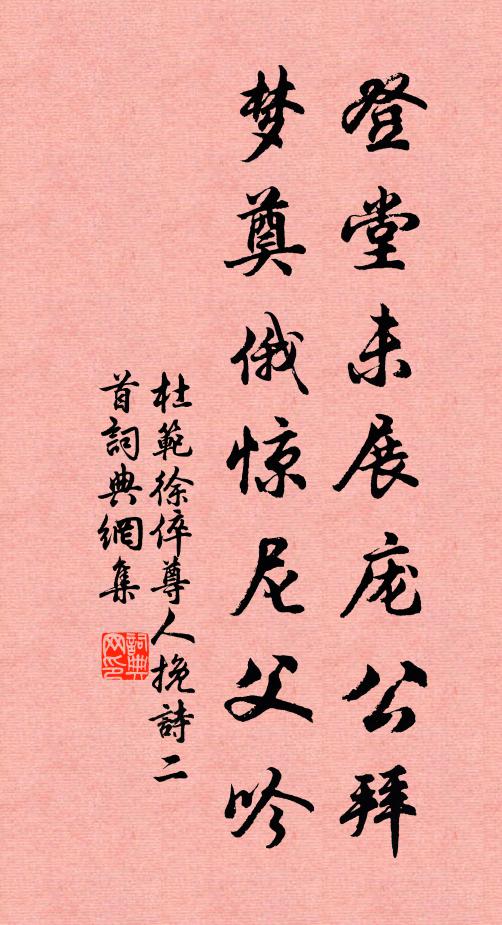 登堂未展庞公拜
梦奠俄惊尼父吟
杜範徐倅尊人挽詩二
首詞典網集
詞典网印